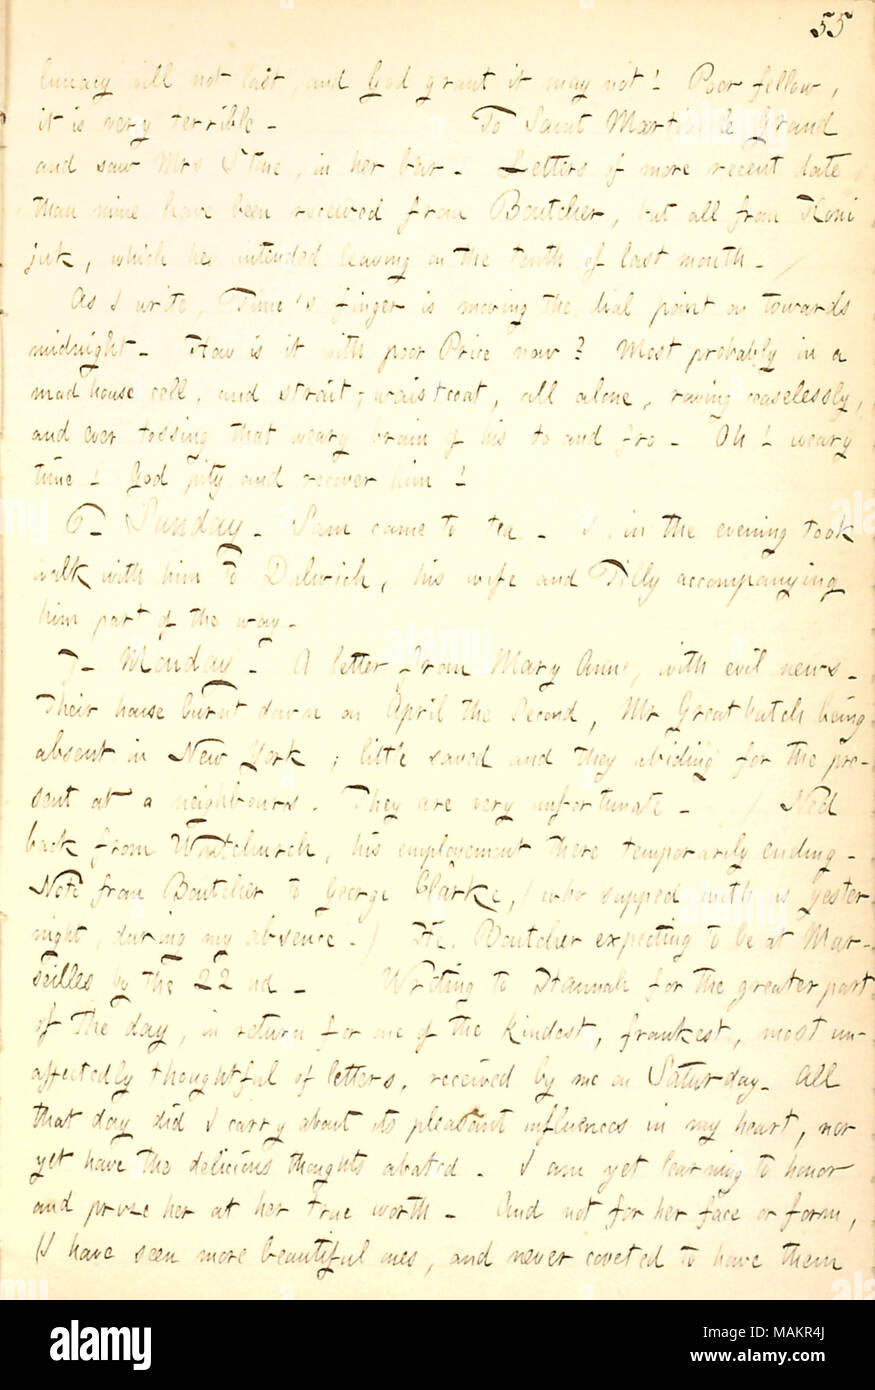 55
lunacy will not last, and God grant it may not! Poor fellow,
it is very terrible – To Saint Martin's le Grand
and saw Mrs Stone, in her bar – Letters of more recent date
than mine have been received from Boutcher, but all from Koni
juk, which he intended leaving on the tenth of last month –
As I write, Time's finger is moving the dial point on towards
midnight – How is it with poor Price now? Most probably in a
mad house cell, and strait-waistcoat, all alone, raving ceaselessly,
and ever tossing that weary brain of his to and fro – Oh! weary
time! God pity and recover him!
6 – Sunday – Sam came to tea – I, in the evening took
walk with him to Dulwich, his wife and Tilly accompanying
him part of the way –
7 – Monday – A letter from Mary Anne, with evil news –
Their house burnt down on April the Second, Mr Greatbatch being
absent in New York; little saved and they abiding for the pre-
sent at a neighbours. They are very unfortunate – / Ned
back from Whitchurch, his employement there temporarily ending –
Note from Boutcher to George Clarke, (who supped with us yester-
night, during my absence.) He, Boutcher expecting to be at Mar-
seilles by the 22nd – Writing to Hannah for the greater part
of the day, in return for one of the kindest, frankest, most un-
affectedly thoughtful of letters, received by me on Saturday – All
that day did I carry about its pleasant influences in my heart, nor
yet have the delicious thoughts abated – I am yet learning to honor
and prize her at her true worth – And not for her face or form,
(I have seen more beautiful ones, and never coveted to have them
alamy
Image ID: MAKR4J
www.alamy.com